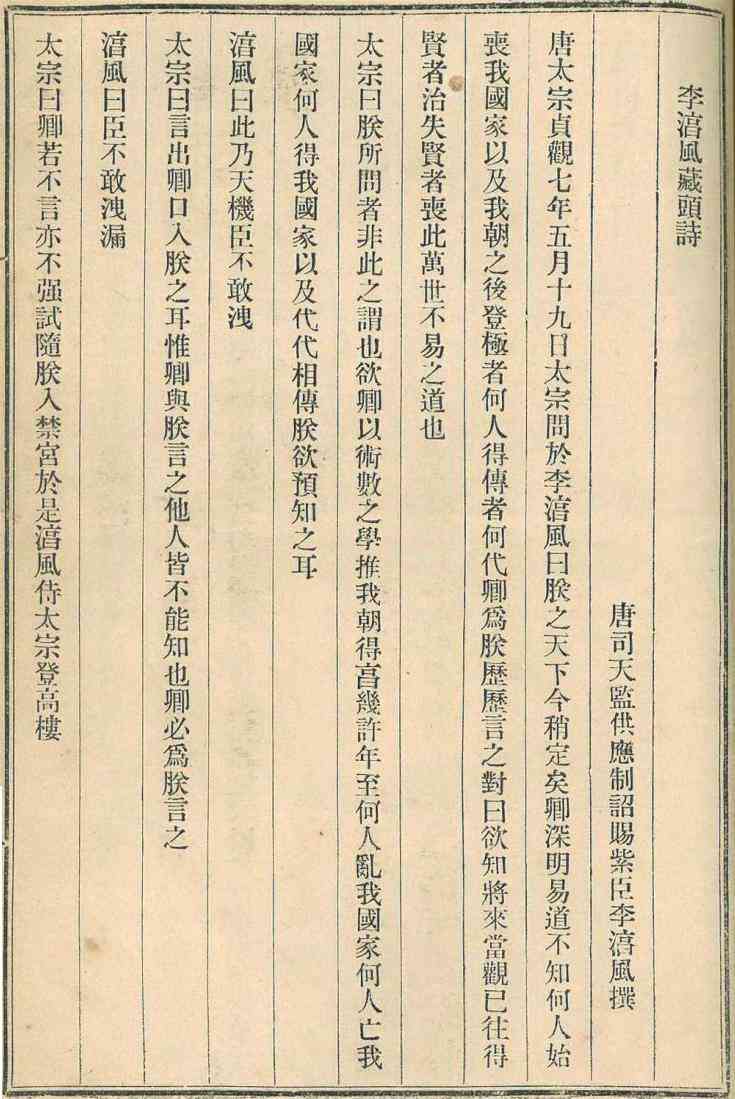 李淯風藏頭詩
唐司天監供應制詔賜紫臣李淯風撰
唐太宗貞觀七年五月十九日太宗問於李淯風曰朕之天下今稍定矣卿深明易道不知何人始
喪我國家以及我朝之後登極者何人得傳者何代卿爲朕歷歷言之對曰欲知將來當觀已往得
賢者治失賢者喪此萬世不易之道也
太宗曰朕所問者非此之謂也欲卿以術數之學推我朝得享幾許年至何人亂我國家何人亡我
國家何人得我國家以及代代相傳朕欲預知之耳
淯風曰此乃天機臣不敢洩
太宗曰言出卿口入朕之耳惟卿與朕言之他人皆不能知也卿必爲朕言之
淯風曰臣不敢洩漏
太宗曰卿若不言亦不强試隨朕入禁宮於是淯風侍太宗登高樓